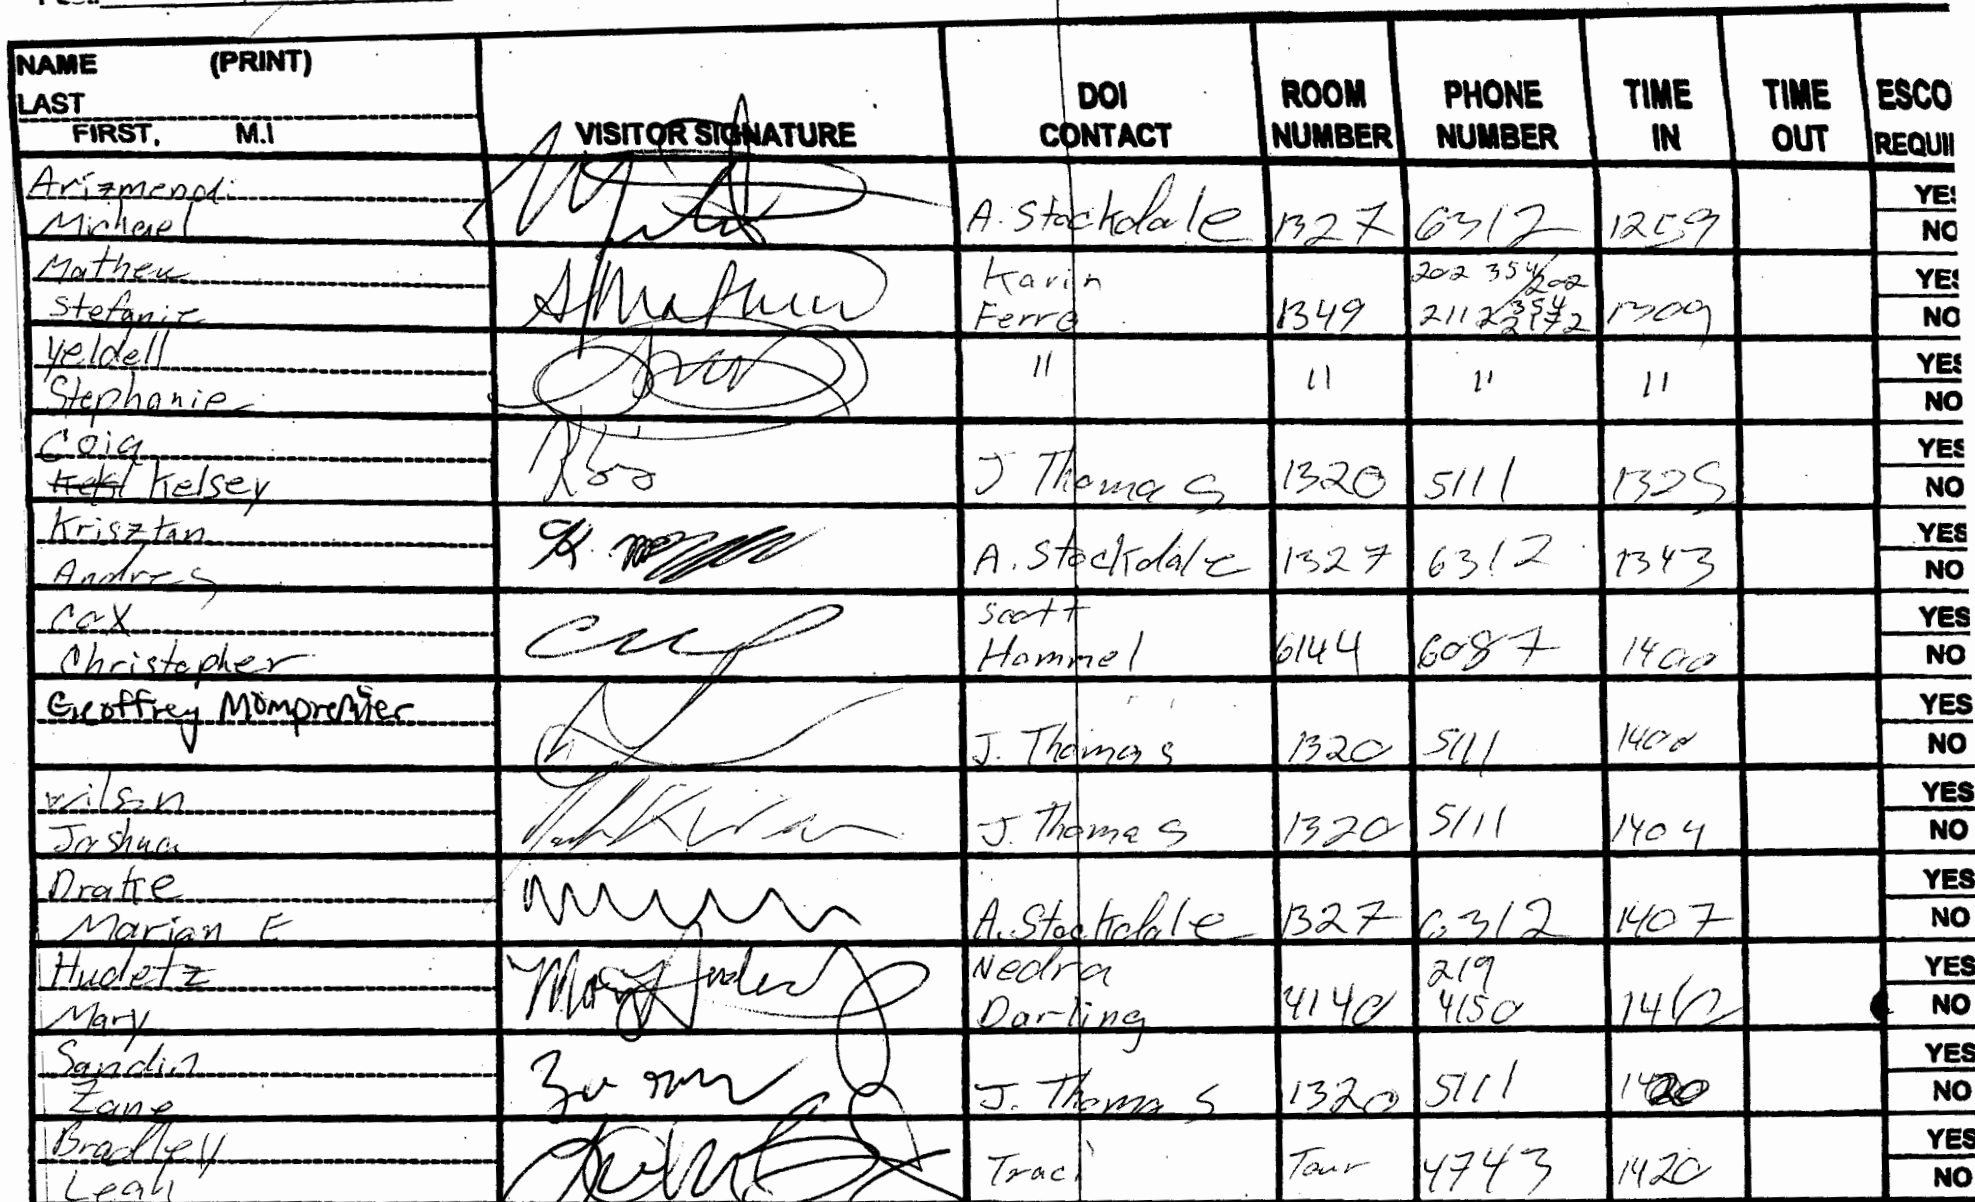 NAME (PRINT)
LAST
FIRST, M.I
VISITOR SIGNATURE
DOI CONTACT
ROOM NUMBER
PHONE NUMBER
TIME IN
TIME OUT
ESCO
REQUI
Arizmendi
Michael A. Stockdale 1327 6312 1259
YES
NO
Mathew Karin 202 354/202
Stefanie Ferro 1349 2112 354 2172 1309
YES
NO
Yeldell
Stephanie " " " "
YES
NO
Coig
Kelsey J Thomas 1320 5111 1325
YES
NO
Krisztan
Andres A. Stockdale 1327 6312 1343
YES
NO
Cox Scott
Christopher Hommel 6144 6087 1400
YES
NO
Geoffrey Mompremier
J. Thomas 1320 5111 1400
YES
NO
Wilson
Joshua J. Thomas 1320 5111 1404
YES
NO
Drake
Marian E A. Stockdale 1327 6312 1407
YES
NO
Hudetz Nedra 219
Mary Darling 4140 4150
YES
NO
Sandin
Zane J. Thomas 1320 5111 1420
YES
NO
Bradley
Leah Traci Tour 4743 1420
YES
NO